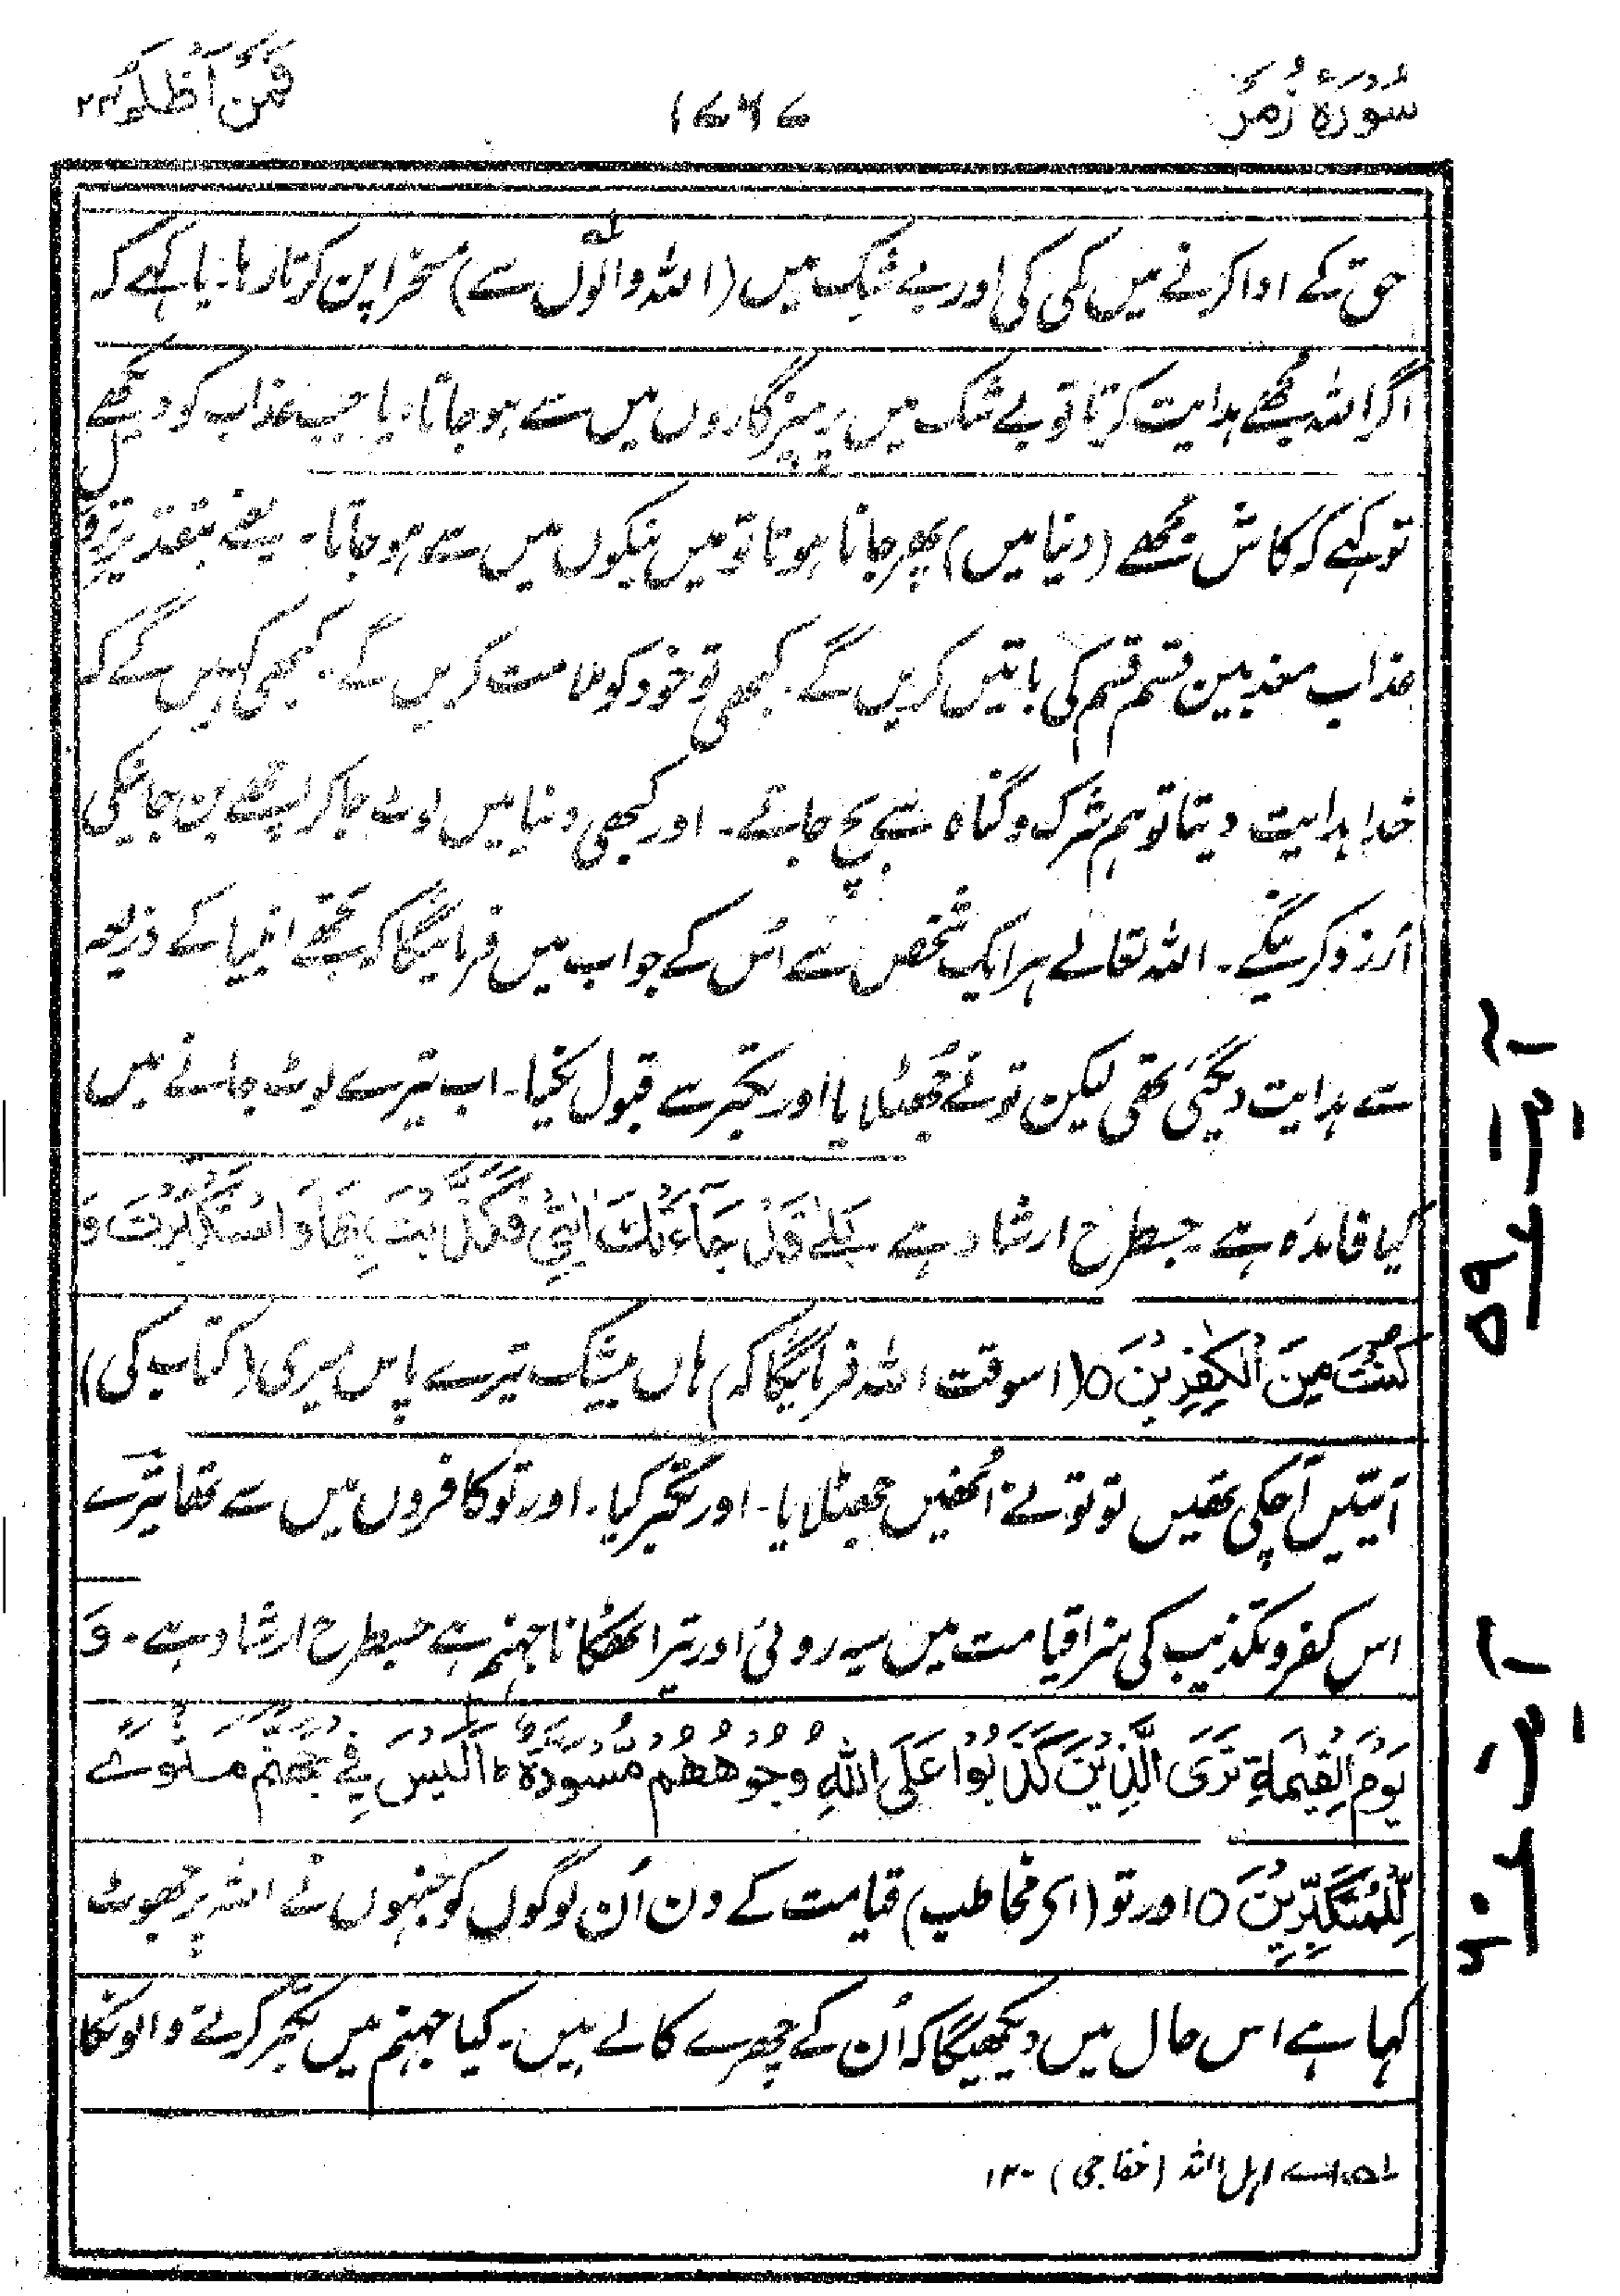 سُوْرَۃُ زُمَرْ
۱۶۷۶
فَمَنْ اَظْلَمُ ۲۴
حق کے ادا کرنے میں کمی کی اور بے شک میں (اللہ والوں۱؎ سے) مسخرا پن کرتا رہا۔ یا کہے کہ
اگر اللہ مجھے ہدایت کرتا تو بے شک میں پرہیزگاروں میں سے ہو جاتا۔ یا جب عذاب کو دیکھے
تو کہے کہ کاش مجھے (دنیا میں) پھر جانا ہوتا تو میں نیکوں میں سے ہو جاتا۔ یعنے بتقدیر نزول
عذاب معذبین قسم قسم کی باتیں کریں گے۔ کبھی تو خود کو ملامت کریں گے۔ کبھی کہیں گے کہ
خدا ہدایت دیتا تو ہم شرک و گناہ سے بچ جاتے۔ اور کبھی دنیا میں لوٹ جا کر اچھے بن جانیکی
آرزو کرینگے۔ اللہ تعالے ہر ایک شخص سے اُس کے جواب میں فرمائیگا کہ تجھے انبیا کے ذریعہ
سے ہدایت دیگئی تھی لیکن تونے جُھٹلایا اور تکبّر سے قبول نکیا۔ اب تیرے لوٹ جانے میں
کیا فائدہ ہے۔ جسطرح ارشاد ہے بَلٰے قَدْ جَآءَتْكَ اٰیٰتِیْ فَكَذَّبْتَ بِهَا وَاسْتَكْبَرْتَ وَ
كُنْتَ مِنَ الْكٰفِرِیْنَ ۝ (اسوقت اللہ فرمائیگا کہ) ہاں بیشک تیرے پاس میری (کتاب کی)
آیتیں آچکی تھیں تو تونے اُنھیں جھٹلایا۔ اور تکبّر کیا۔ اور تو کافروں میں سے تھا تیرے
اس کفر و تکذیب کی سزا قیامت میں سیہ روئی اور تیرا ٹھکانا جہنم ہے جسطرح ارشاد ہے۔ وَ
یَوْمَ الْقِیٰمَةِ تَرَی الَّذِیْنَ كَذَبُوْا عَلَی اللّٰهِ وُجُوْهُهُمْ مُّسْوَدَّةٌ ؕ اَلَیْسَ فِیْ جَهَنَّمَ مَثْوًے
لِّلْمُتَكَبِّرِیْنَ ۝ اور تو (ای مخاطب) قیامت کے دن اُن لوگوں کو جنہوں نے اللہ پر جھوٹ
کہا ہے اس حال میں دیکھیگا کہ اُن کے چہرے کالے ہیں۔ کیا جہنم میں تکبّر کرنے والونکا
آیت ۵۹
آیت ۶۰
۱؎ اے اہل اللہ (خفاجی) ۱۲۰